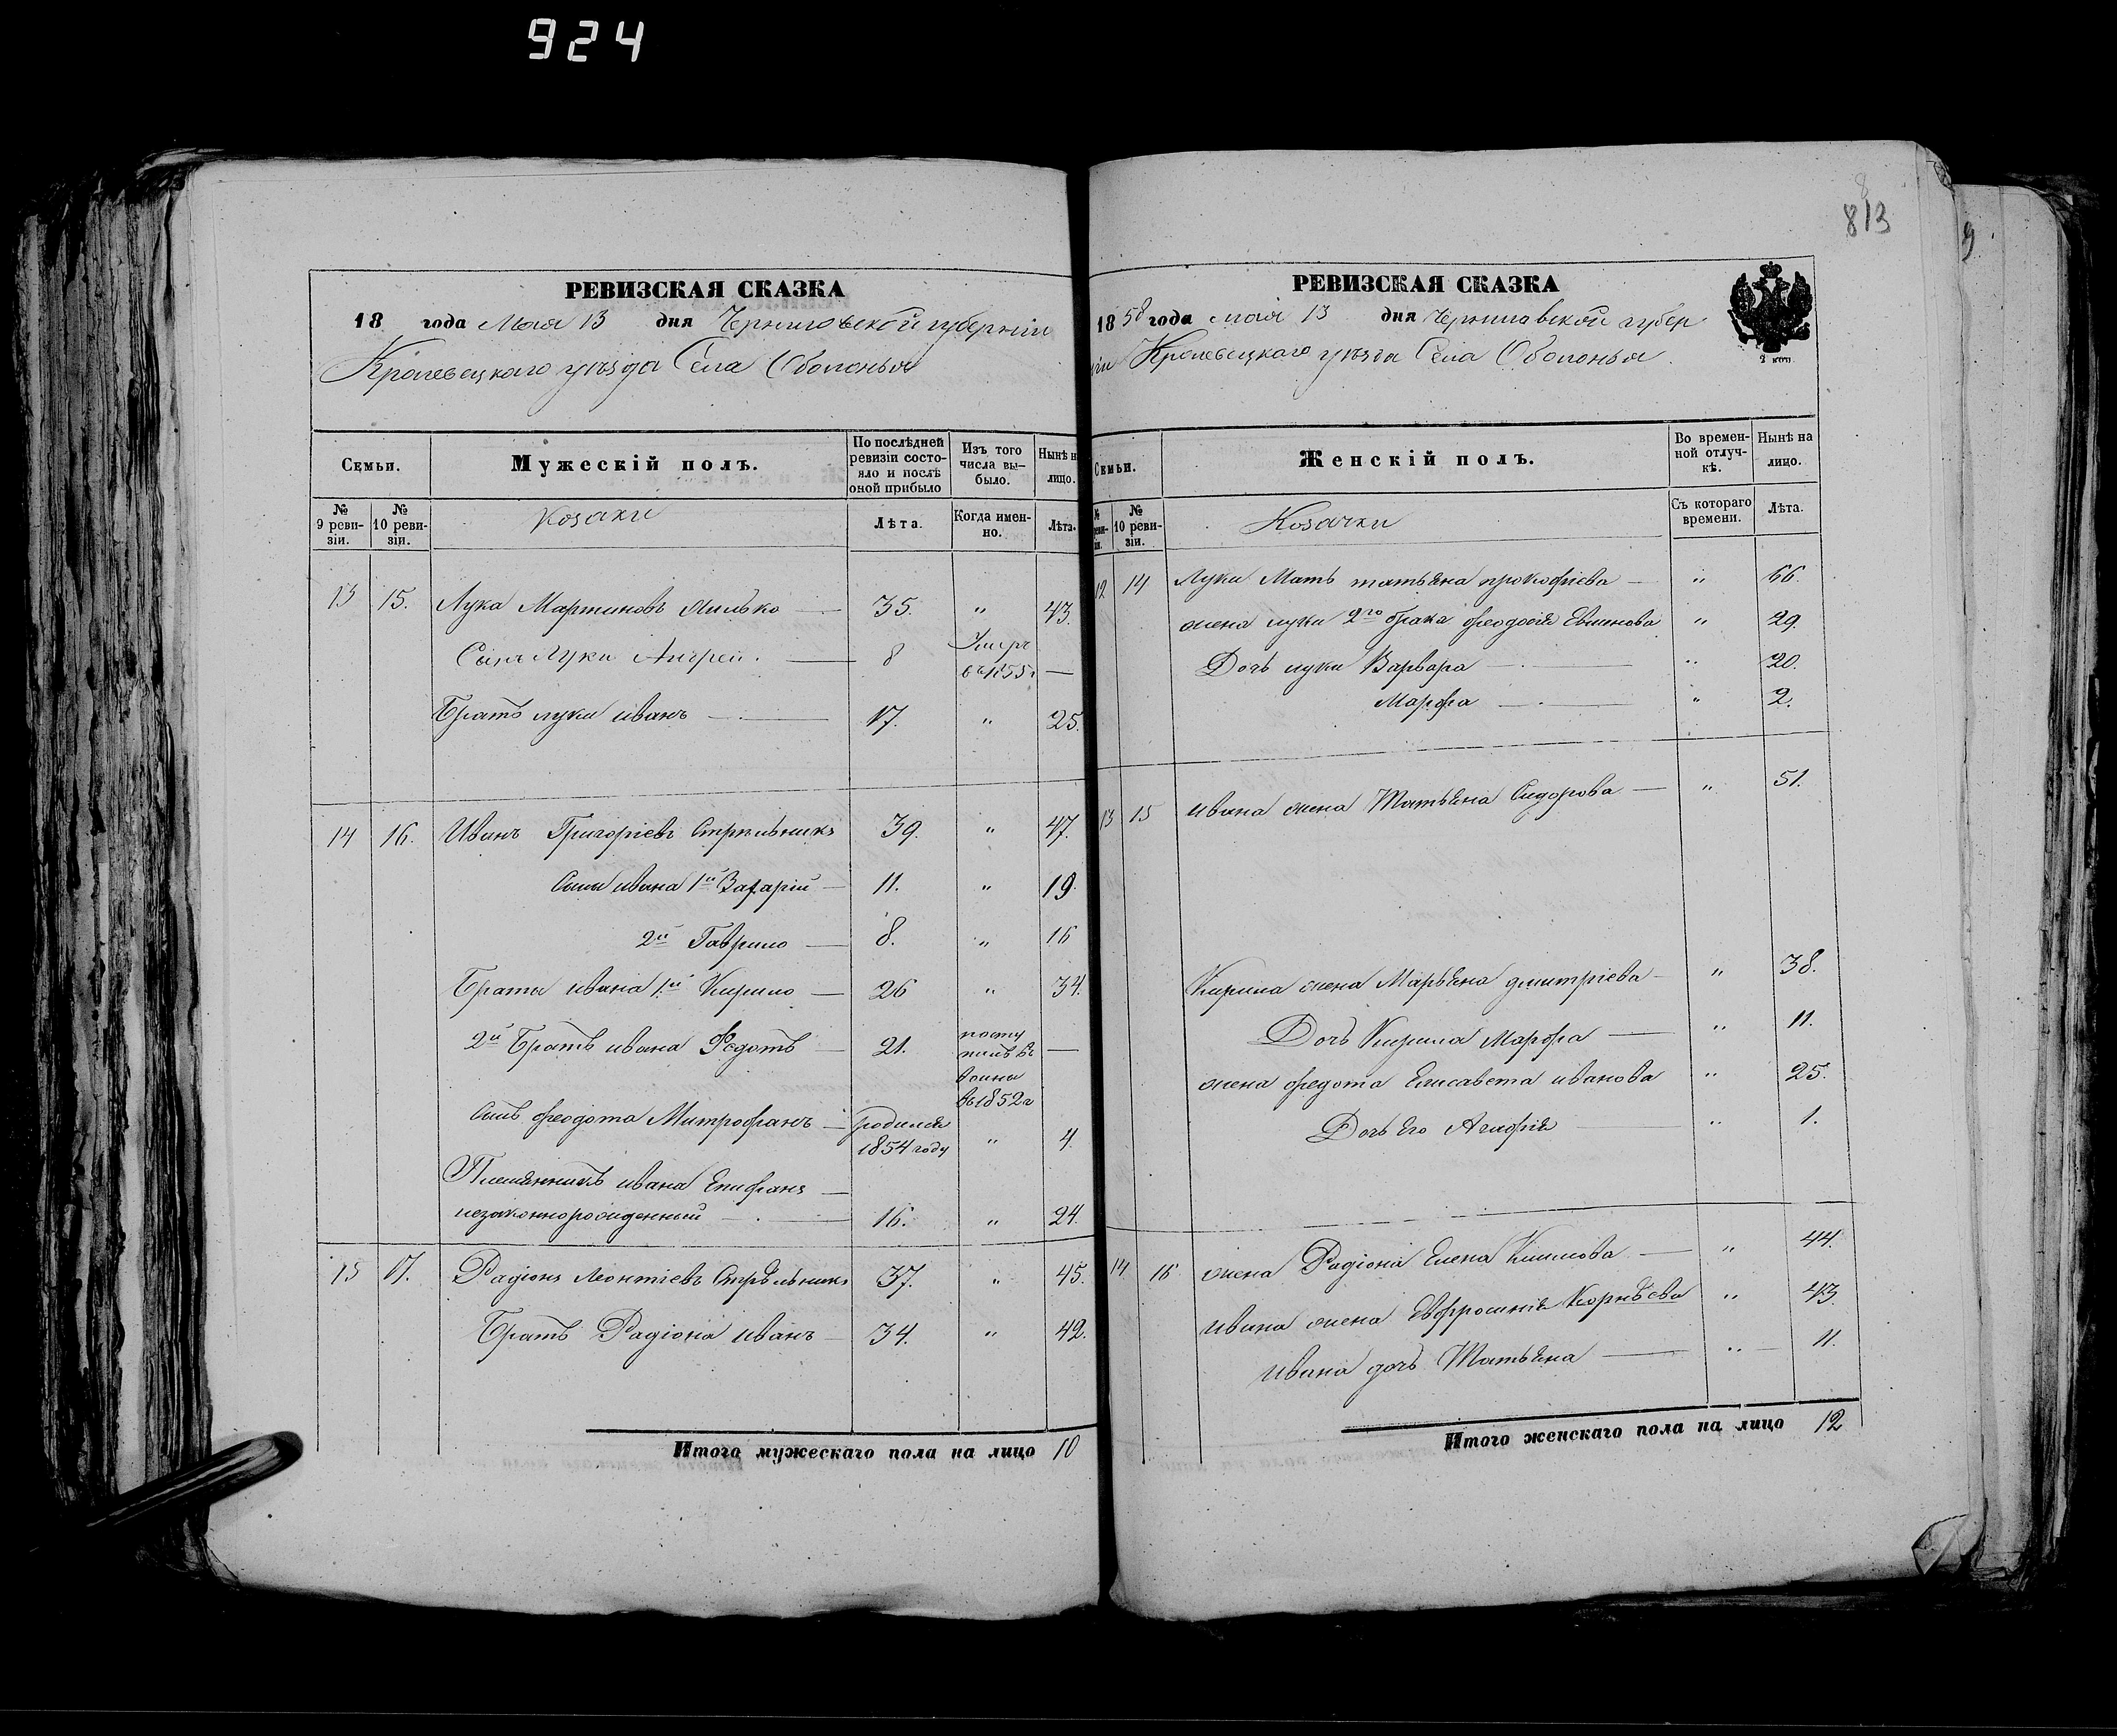 924
8
813
9
РЕВИЗСКАЯ СКАЗКА
18 года Мая 13 дня Черниговской губерніи
Кролевецкаго уѣзда Села Оболонья
Семьи.
Мужескій полъ.
По послѣдней ревизіи состояло и послѣ оной прибыло
Изъ того числа выбыло.
Нынѣ н лицо.
№ 9 ревизіи.
№ 10 ревизіи.
Козаки
Лѣта.
Когда именно.
Лѣта.
13 15. Лука Мартиновъ — 35. " 43.
Сынъ Луки Андрей. — 8 Умеръ въ 1855г —
Братъ луки иванъ — 17. " 25.
14 16. Иванъ Григоріевъ Стрельникъ 39. " 47.
Сыны ивана 1й Захарій — 11. " 19.
2й Гаврило — 8. " 16
Браты ивана 1й Кирило — 26 " 34.
2й Братъ ивана Федотъ — 21. посту пилъ въ воины въ 1852г —
Сынъ феодота Митрофанъ — родился 1854 году " 4.
Племянникъ ивана Епифанъ —
незаконнорожденный — 16. " 24.
15 17. Радіонъ Леонтіевъ Стрѣльникъ 37. " 45.
Братъ Радіона иванъ — 34. " 42.
Итого мужескаго пола на лицо 10
РЕВИЗСКАЯ СКАЗКА
1858 года мая 13 дня Черниговской губер
ніи Кролевецкаго уѣзда Села Оболонья.
2 коп.
Семьи.
Женскій полъ.
Во временной отлучкѣ.
Нынѣ на лицо.
№ 10 ревизіи.
Козачки
Съ котораго времени.
Лѣта.
12 14 Луки Мать татьяна прокофіева — " 66.
жена луки 2го брака феодосія " 29.
Дочь луки Варвара — " 20.
Марфа — " 2.
13 15 ивана жена Татьяна Сидорова — " 51.
Кирила жена Марьяна дмитріева — " 38.
Дочь Кирила Марфа — " 11.
жена федота Елисавета иванова " 25.
Дочь Его Агафія — " 1.
14 16 жена Радіона Елена Климова — " 44.
ивана жена Евфросинія Корнѣева " 43.
ивана дочь Татьяна — " 11.
Итого женскаго пола на лицо 12